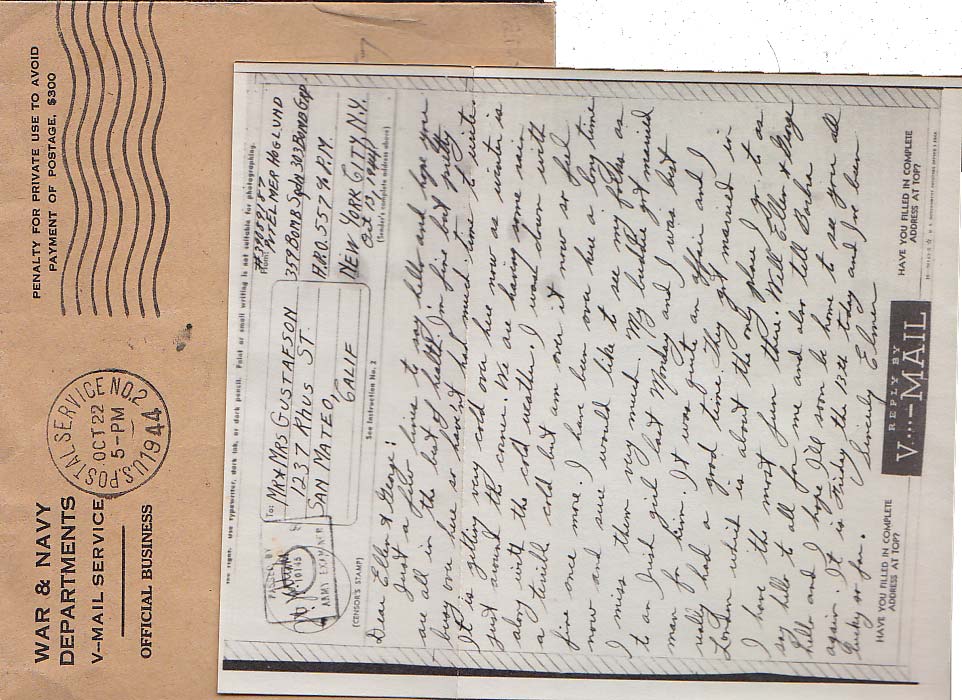 WAR & NAVY
DEPARTMENTS
V-MAIL SERVICE
OFFICIAL BUSINESS
U.S. POSTAL SERVICE NO. 2
OCT 22
5-PM
1944
PENALTY FOR PRIVATE USE TO AVOID
PAYMENT OF POSTAGE, $300
use typewriter, dark ink, or dark pencil. Faint or small writing is not suitable for photographing.
PASSED BY
10145
ARMY EXAMINER
(CENSOR'S STAMP)
To:
MR & MRS GUSTAFSON
1237 RHUS ST.
SAN MATEO,
CALIF
See Instruction No. 2
From:
PVT ELMER HOGLUND
359 BOMB SQDN 303 BOMB GRP
A.P.O. 557 % P.M.
NEW YORK CITY N.Y.
Oct 13, 1944
(Sender's complete address above)
Dear Ellen & George:
Just a few lines to say hello and hope you
are all in the best of health. I'm fine but pretty
busy over here so haven't had much time to write.
It is getting very cold over here now as winter is
just around the corner. We are having some rain
along with the cold weather. I was down with
a terible cold but am over it now so feel
fine once more. I have been over here a long time
now and sure would like to see my folks as
I miss them very much. My buddie got married
to an Irish girl last Monday and I was best
man for him. It was quite an affair and I
really had a good time. They got married in
London which is about the only place I go to as
I have the most fun there. Well Ellen & George
say hello to all for me and also tell Barbra
hello and I hope I'll soon be home to see you all
again. It is Friday the 13th today and I've been
lucky so far.
Sincerely Elmer
HAVE YOU FILLED IN COMPLETE
ADDRESS AT TOP?
REPLY BY
V...-MAIL
HAVE YOU FILLED IN COMPLETE
ADDRESS AT TOP?